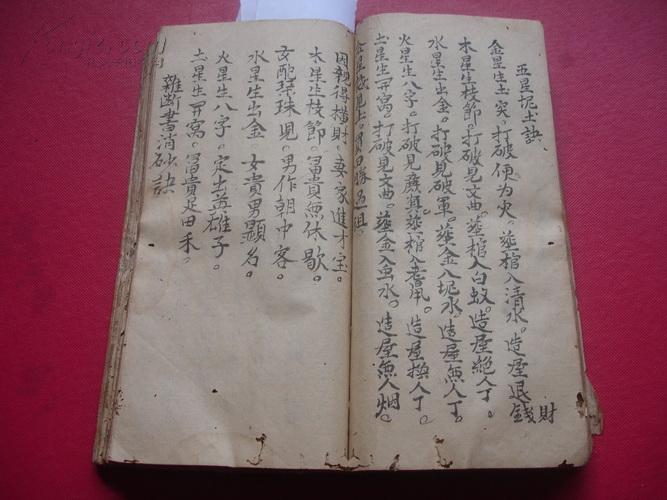 五星坭土訣
金星生土突。打破便为火。葬棺入清水。造屋退錢財
木星生枝節。打破見文曲。葬棺入白蚁。造屋絕人丁。
水星生出金。打破見破軍。葬金入坭水。造屋無人丁。
火星生八字。打破見廉貞。葬棺入老鼠。造屋損人丁。
土星生开窩。打破見文曲。葬金入虫水。造屋無人烟。
金星
因親得横財。妻家進才宝。
木星生枝節。冨貴無休歇。
女配琹珠児。男作朝中客。
水星生出金。女貴男顯名。
火星生八字。定出英雄子。
土星生开窩。冨貴足田禾。
雜断書消砂訣